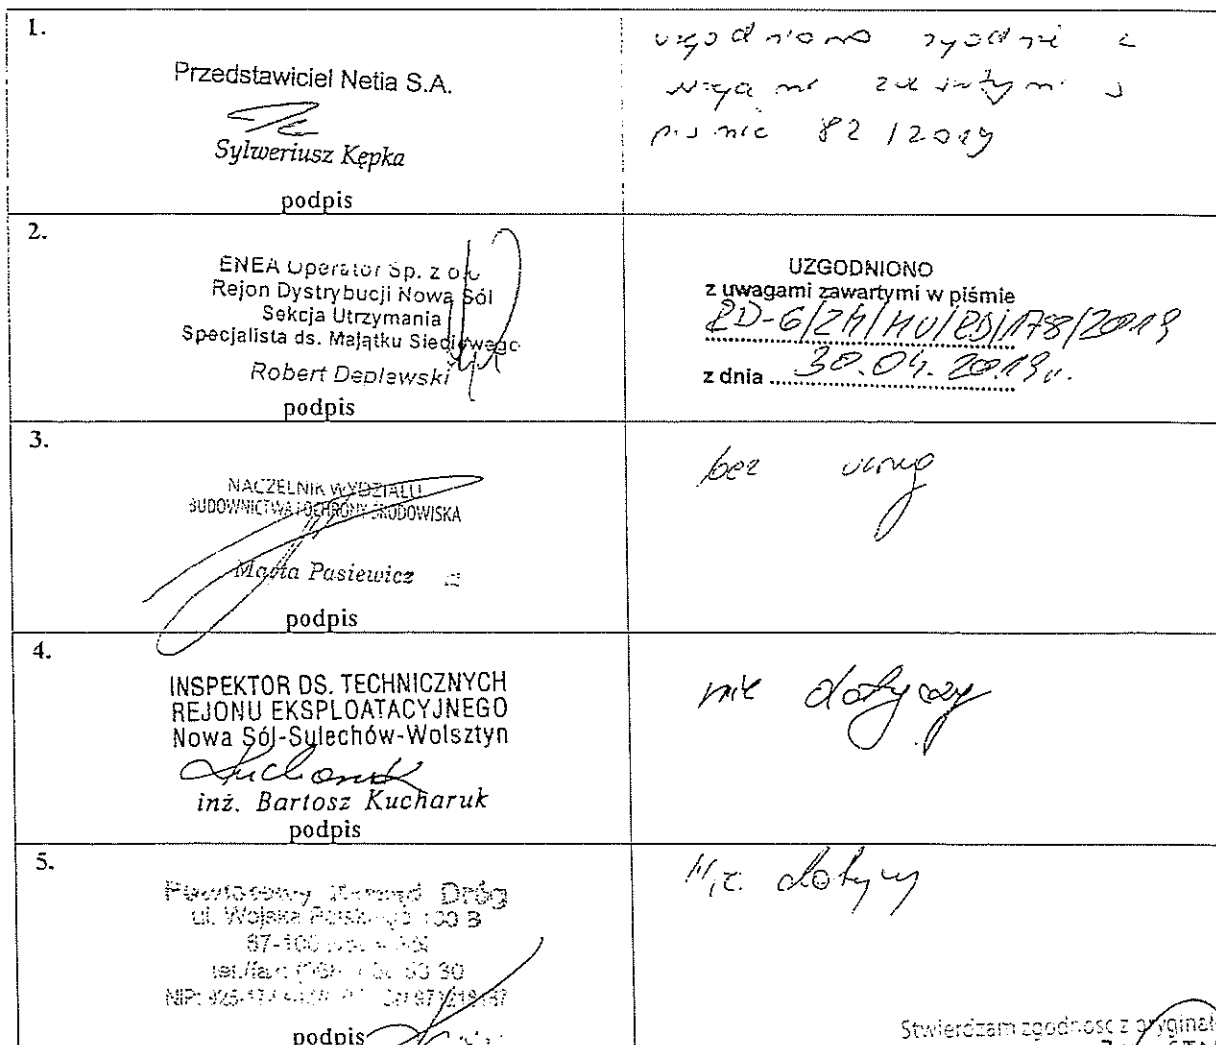 1.
Przedstawiciel Netia S.A.
Sylweriusz Kępka
podpis
uzgodniono zgodnie z
zawartymi w
piśmie 82/2019
2.
ENEA Operator Sp. z o.o
Rejon Dystrybucji Nowa Sól
Sekcja Utrzymania
Specjalista ds. Majątku Sieciowego
Robert Deplewski
podpis
UZGODNIONO
z uwagami zawartymi w piśmie
178/2019
z dnia 30.04.2019 r.
3.
NACZELNIK WYDZIAŁU
BUDOWNICTWA I OCHRONY ŚRODOWISKA
Marta Pasiewicz
podpis
bez uwag
4.
INSPEKTOR DS. TECHNICZNYCH
REJONU EKSPLOATACYJNEGO
Nowa Sól-Sulechów-Wolsztyn
Kucharuk
inż. Bartosz Kucharuk
podpis
nie dotyczy
5.
Powiatowy Zarząd Dróg
ul. Wojska Polskiego 100 B
67-100 Nowa Sól
tel./fax
NIP: 925-
podpis
nie dotyczy
Stwierdzam zgodność z